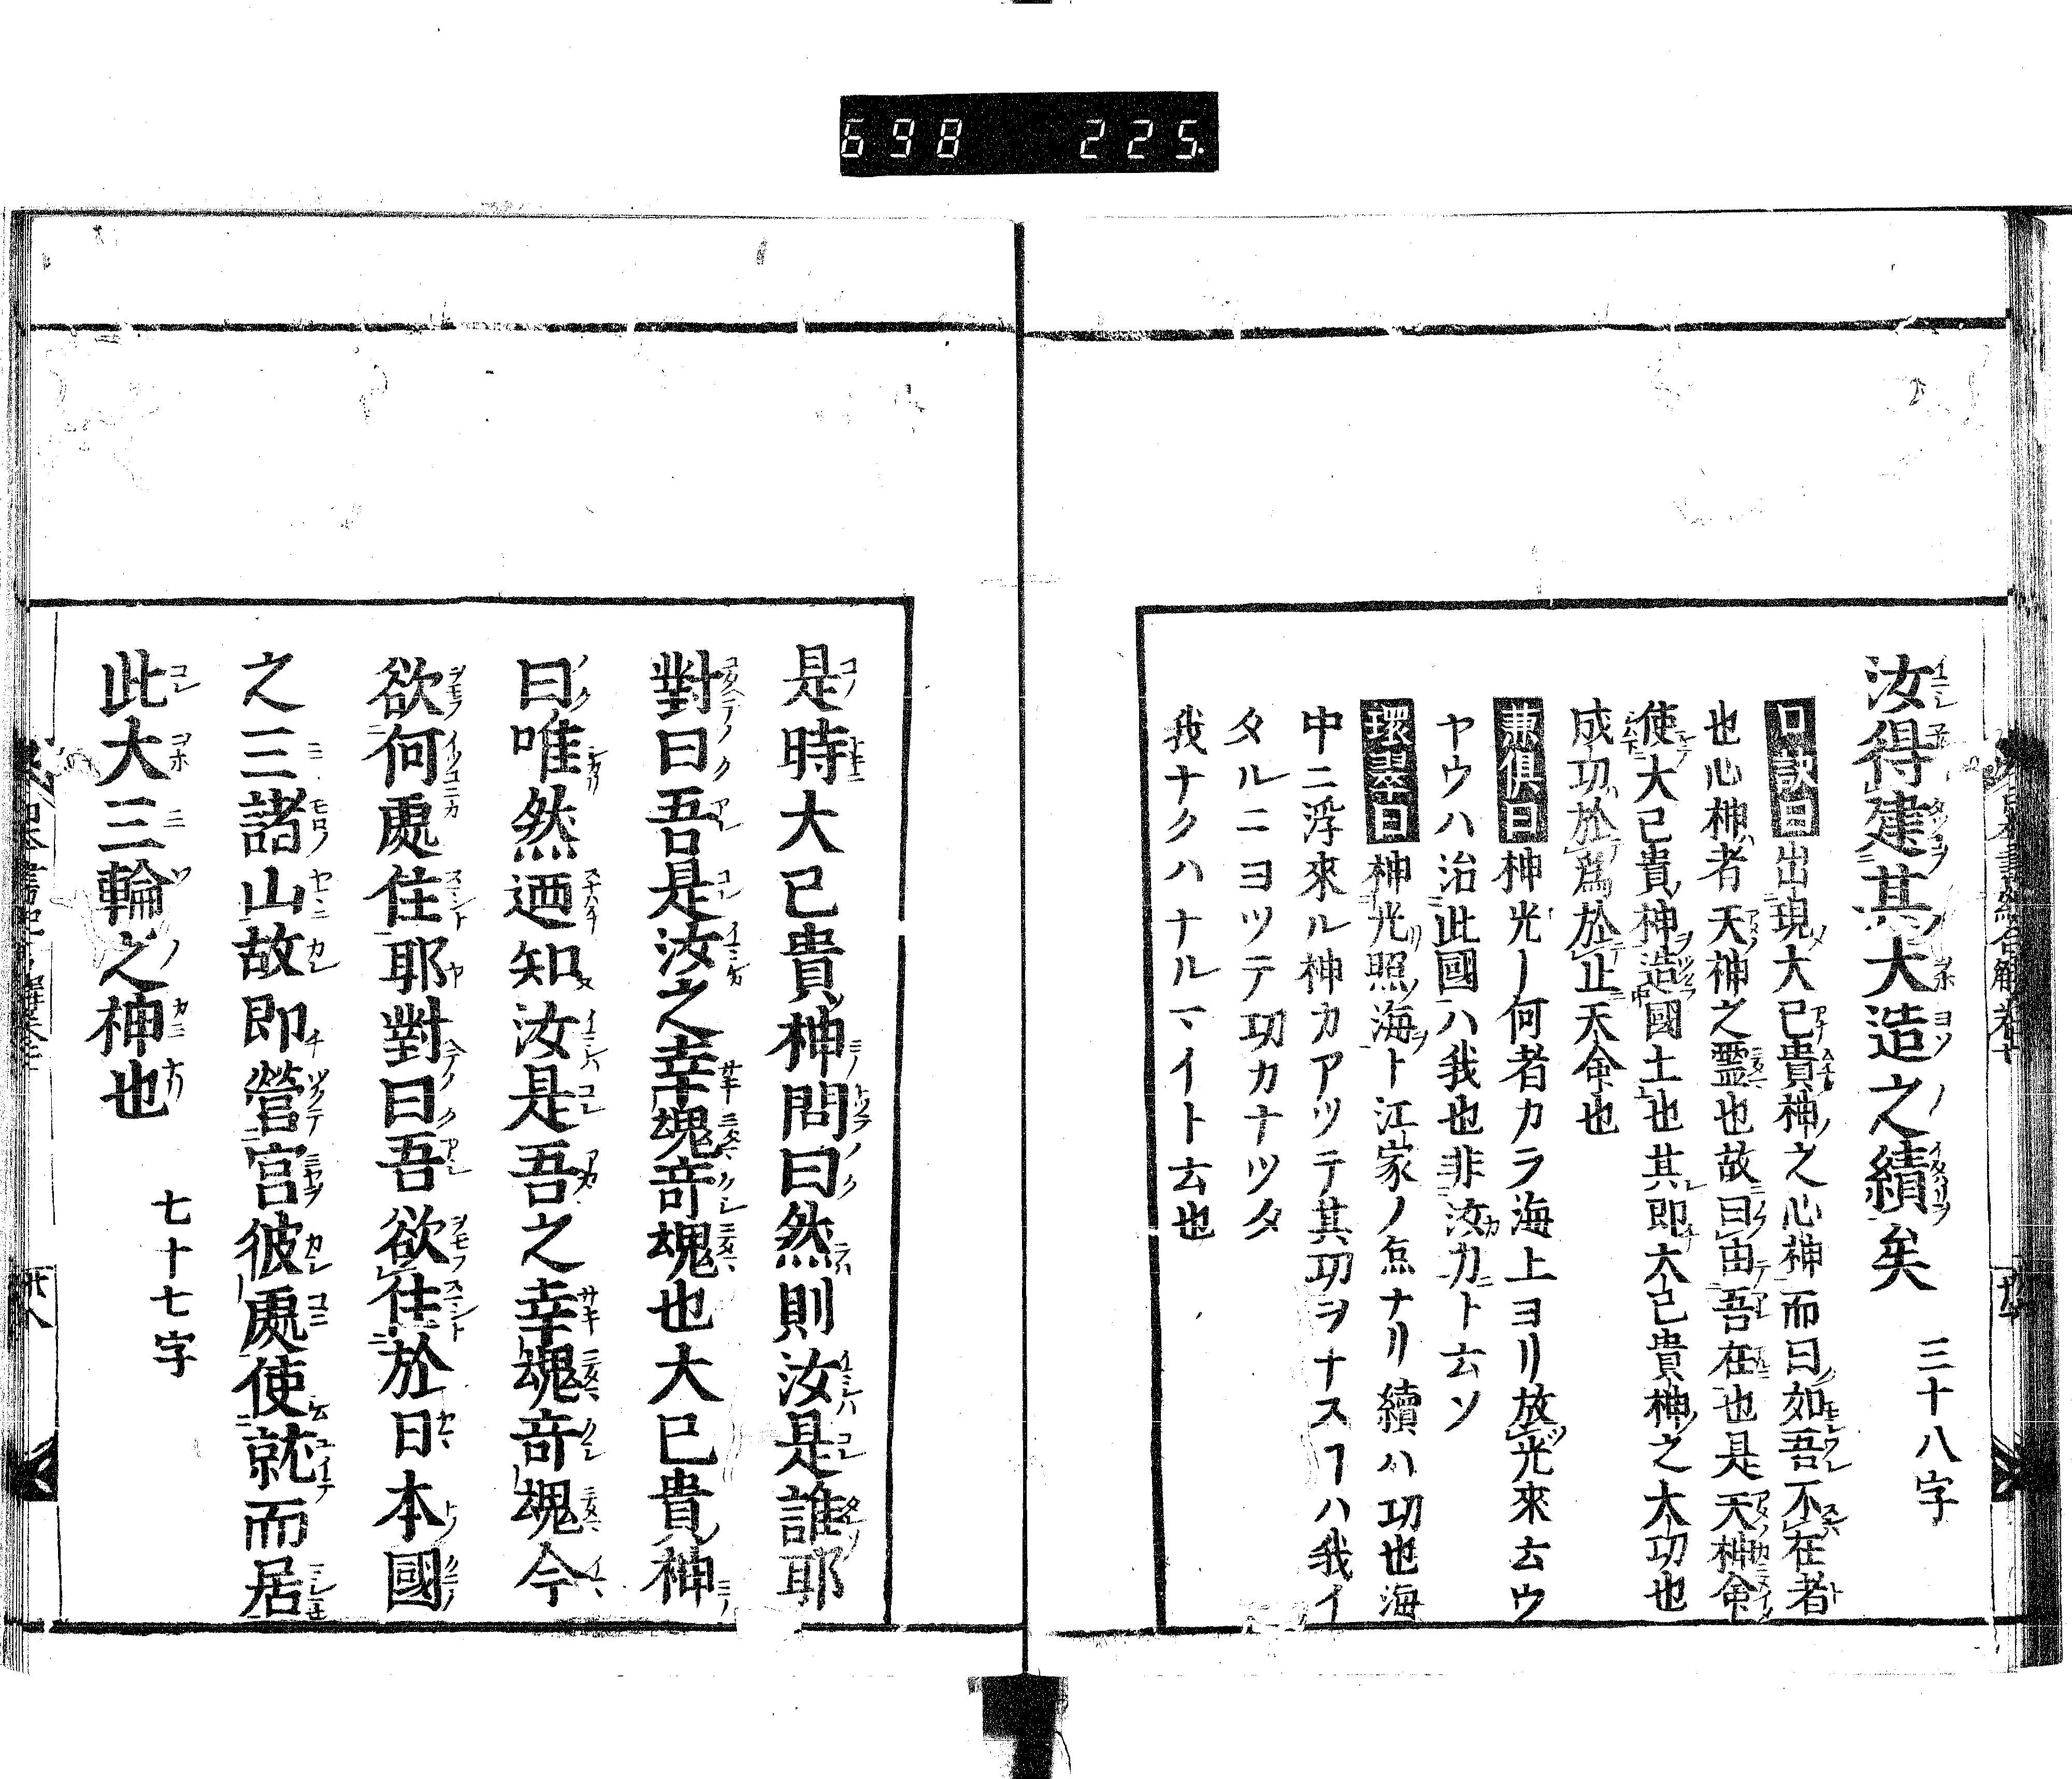 698 225
汝得建其大造之績矣 三十八字
口訣曰出現大己貴神之心神而曰如吾不在者
也心神者天神之靈也故曰由吾在也是天神命
使大己貴神造國土也其即大己貴神之大功也
成功於爲於止天命也
兼倶曰神光ー何者カラ海上ヨリ放光來云ウ
ヤウハ治此國ハ我也非汝力ト云ソ
環翠曰神光照海ト江家ノ点ナリ續ハ功也海
中ニ浮來ル神カアツテ其功ヲナスヿハ我イ
タルニヨツテ功カナツタ
我ナクハナルマイト云也
是時大己貴神問曰然則汝是誰耶
對曰吾是汝之幸魂奇魂也大已貴神
曰唯然廼知汝是吾之幸魂奇魂今
欲何處住耶對曰吾欲住於日本國
之三諸山故即營宮彼處使就而居
此大三輪之神也 七十七字